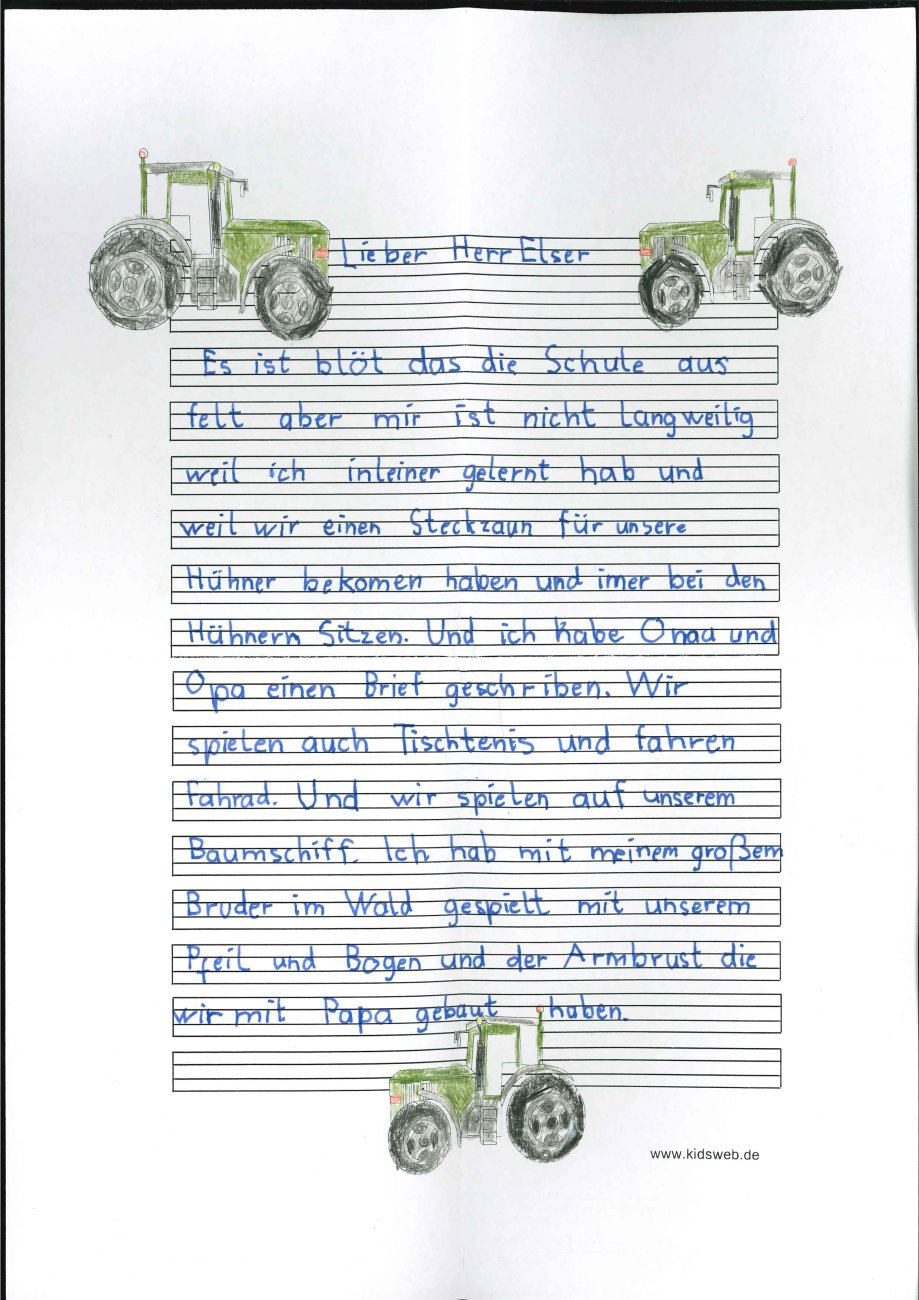 Lieber Herr Elser
Es ist blöt das die Schule aus
felt aber mir ist nicht langweilig
weil ich inleiner gelernt hab und
weil wir einen Steckzaun für unsere
Hühner bekomen haben und imer bei den
Hühnern Sitzen. Und ich habe Oma und
Opa einen Brief geschriben. Wir
spielen auch Tischtenis und fahren
Fahrad. Und wir spielen auf unserem
Baumschiff. Ich hab mit meinem großem
Bruder im Wald gespielt mit unserem
Pfeil und Bogen und der Armbrust die
wir mit Papa gebaut haben.
www.kidsweb.de